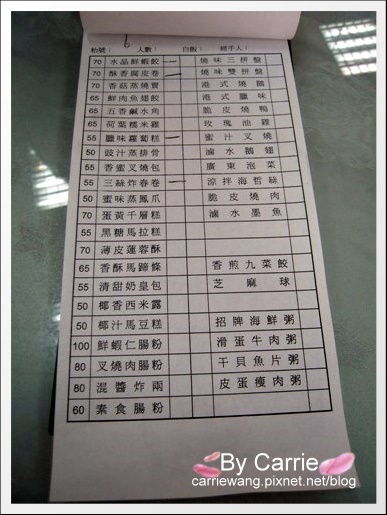 枱號： 6 人數： 白飯： 經手人：
70 水晶鮮蝦餃 一 燒味三拼盤
70 酥香腐皮卷 一 燒味雙拼盤
70 香菇蒸燒賣 港式燒鵝
65 鮮肉魚翅餃 港式臘味
65 五香鹹水角 脆皮燒鴨
65 荷葉糯米雞 玫瑰油雞
55 臘味蘿蔔糕 一 蜜汁叉燒
50 豉汁蒸排骨 滷水鵝翅
55 香蜜叉燒包 廣東泡菜
55 三絲炸春卷 一 涼拌海哲絲
50 蜜味蒸鳳爪 脆皮燒肉
70 蛋黃千層糕 滷水墨魚
55 黑糖馬拉糕
70 薄皮蓮蓉酥
65 香酥馬蹄條 香煎九菜餃
55 清甜奶皇包 芝麻球
50 椰香西米露
50 椰汁馬豆糕 招牌海鮮粥
100 鮮蝦仁腸粉 滑蛋牛肉粥
80 叉燒肉腸粉 干貝魚片粥
80 混醬炸兩 皮蛋瘦肉粥
60 素食腸粉
By Carrie
carriewang.pixnet.net/blog